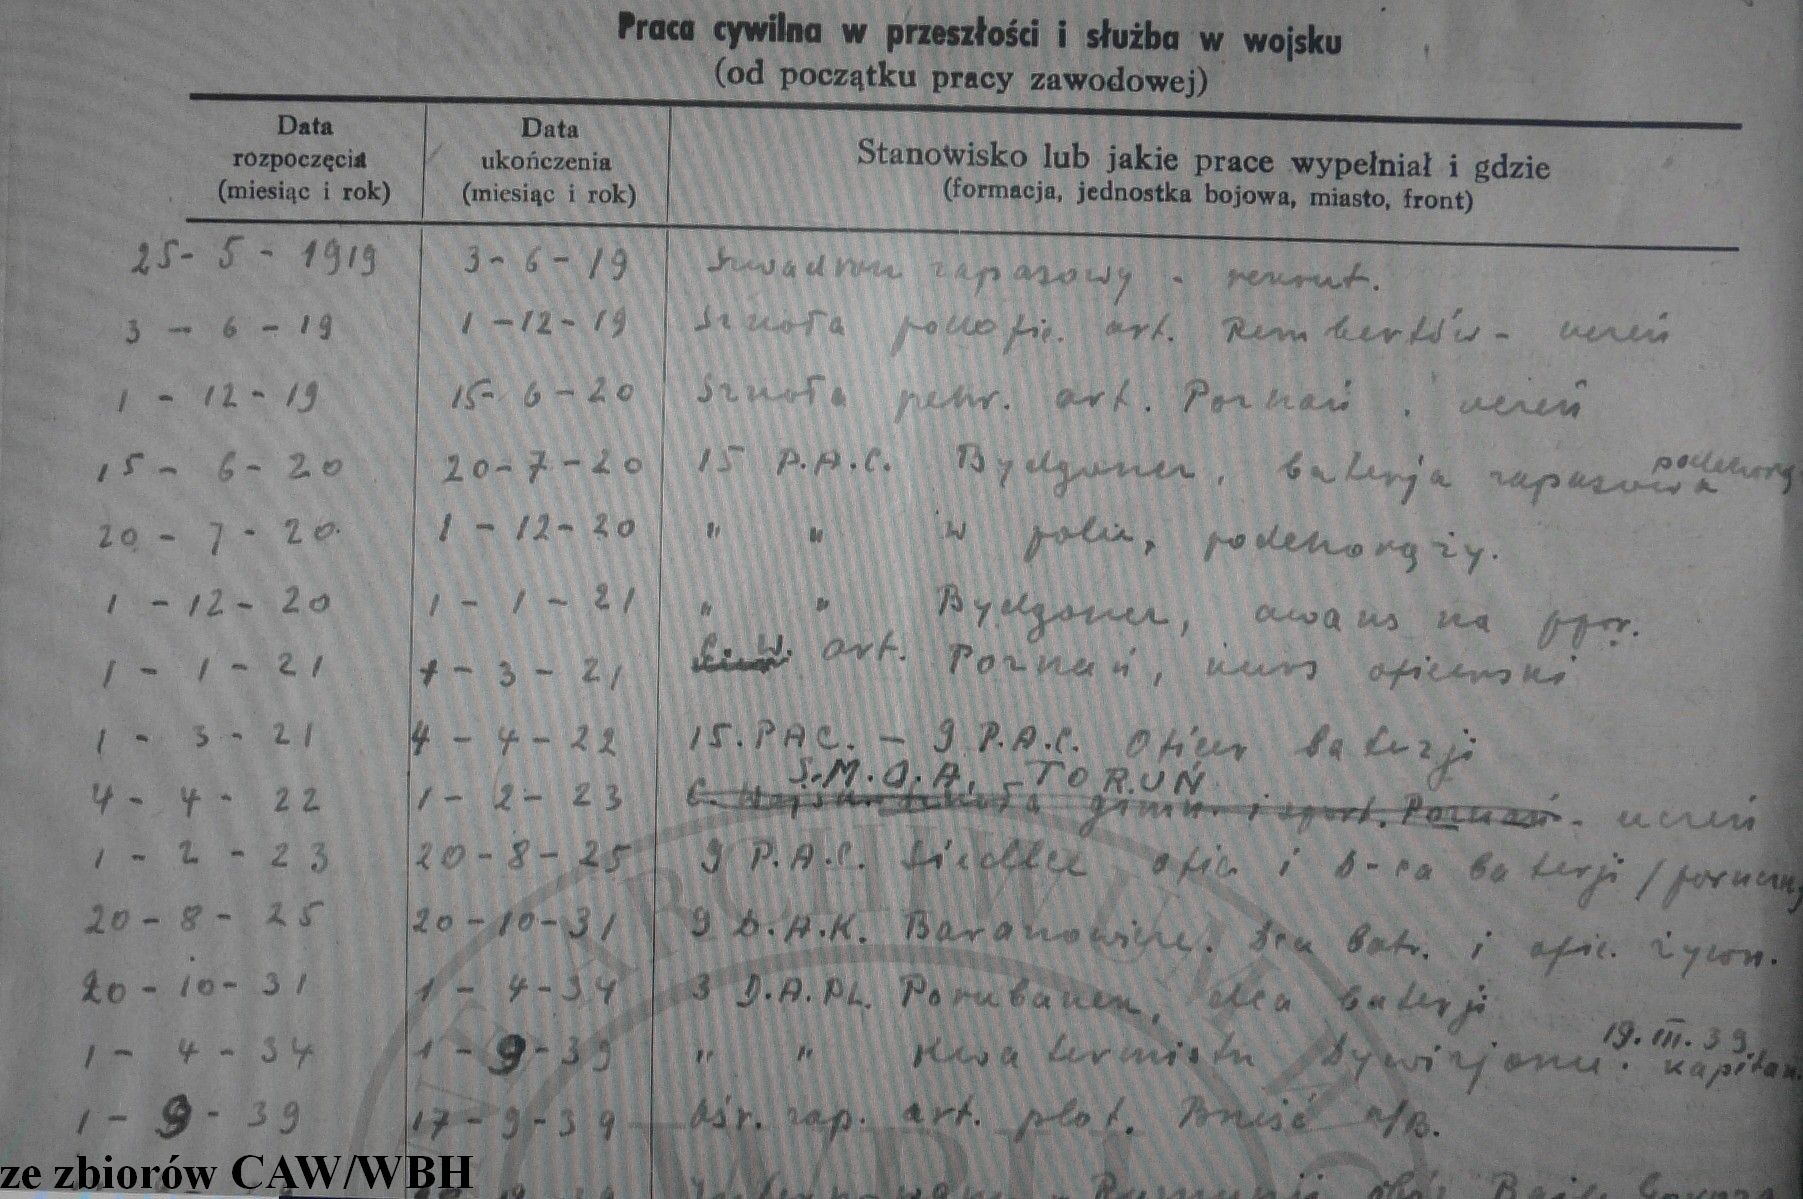 Praca cywilna w przeszłości i służba w wojsku
(od początku pracy zawodowej)
Data rozpoczęcia (miesiąc i rok)
Data ukończenia (miesiąc i rok)
Stanowisko lub jakie prace wypełniał i gdzie
(formacja, jednostka bojowa, miasto, front)
25- 5 - 1919 3 - 6 - 19 Szwadron zapasowy - rekrut.
3 - 6 - 19 1 - 12 - 19 Szkoła podofic. art. Rembertów - uczeń
1 - 12 - 19 15 - 6 - 20 Szkoła pchr. art. Poznań . uczeń
15 - 6 - 20 20 - 7 - 20 15 P.A.C. Bydgoszcz, baterja zapasowa podchorąży
20 - 7 - 20 1 - 12 - 20 " " w polu, podchorąży.
1 - 12 - 20 1 - 1 - 21 " " Bydgoszcz, awans na ppor.
1 - 1 - 21 1 - 3 - 21 C. W. art. Poznań, kurs oficerski
1 - 3 - 21 4 - 4 - 22 15. PAC. - 9 P.A.C. Oficer baterji
S.M.O.A. - TORUŃ
4 - 4 - 22 1 - 2 - 23 C. Wojsk. Szkoła gimn. i sport. Poznań - uczeń
1 - 2 - 23 20 - 8 - 25 9 P.A.C. Siedlce ofic. i D-ca baterji / porucz
20 - 8 - 25 20 - 10 - 31 9 D.A.K. Baranowicze. Dca batr. i ofic. żywn.
20 - 10 - 31 1 - 4 - 34 3 D.A.PL. Porubanek, dca baterji
1 - 4 - 34 1 - 9 - 39 " " Kwatermistrz Dywizjonu. 19.III.39. kapitan
1 - 9 - 39 17 - 9 - 39 Ośr. zap. art. plot. Brześć n/B.
Rumunji
ze zbiorów CAW/WBH
ARCHIWUM
WBH